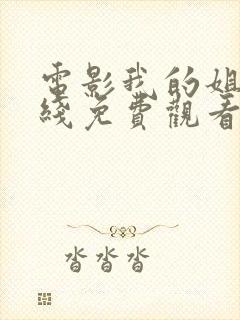 電影我的姐
綫免費觀看
沓沓沓